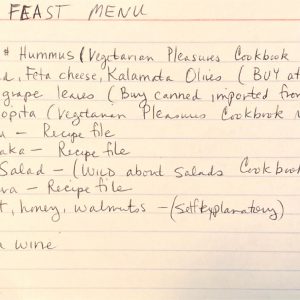 FEAST MENU
* Hummus (Vegetarian Pleasures Cookbook
d, Feta cheese, Kalamata Olives (BUY at
grape leaves (Buy canned imported from
opita (Vegetarian Pleasures Cookbook
u - Recipe file
aka - Recipe file
Salad - (Wild about Salads Cookbook
va - Recipe file
t, honey, walnuts - (self explanatory)
wine